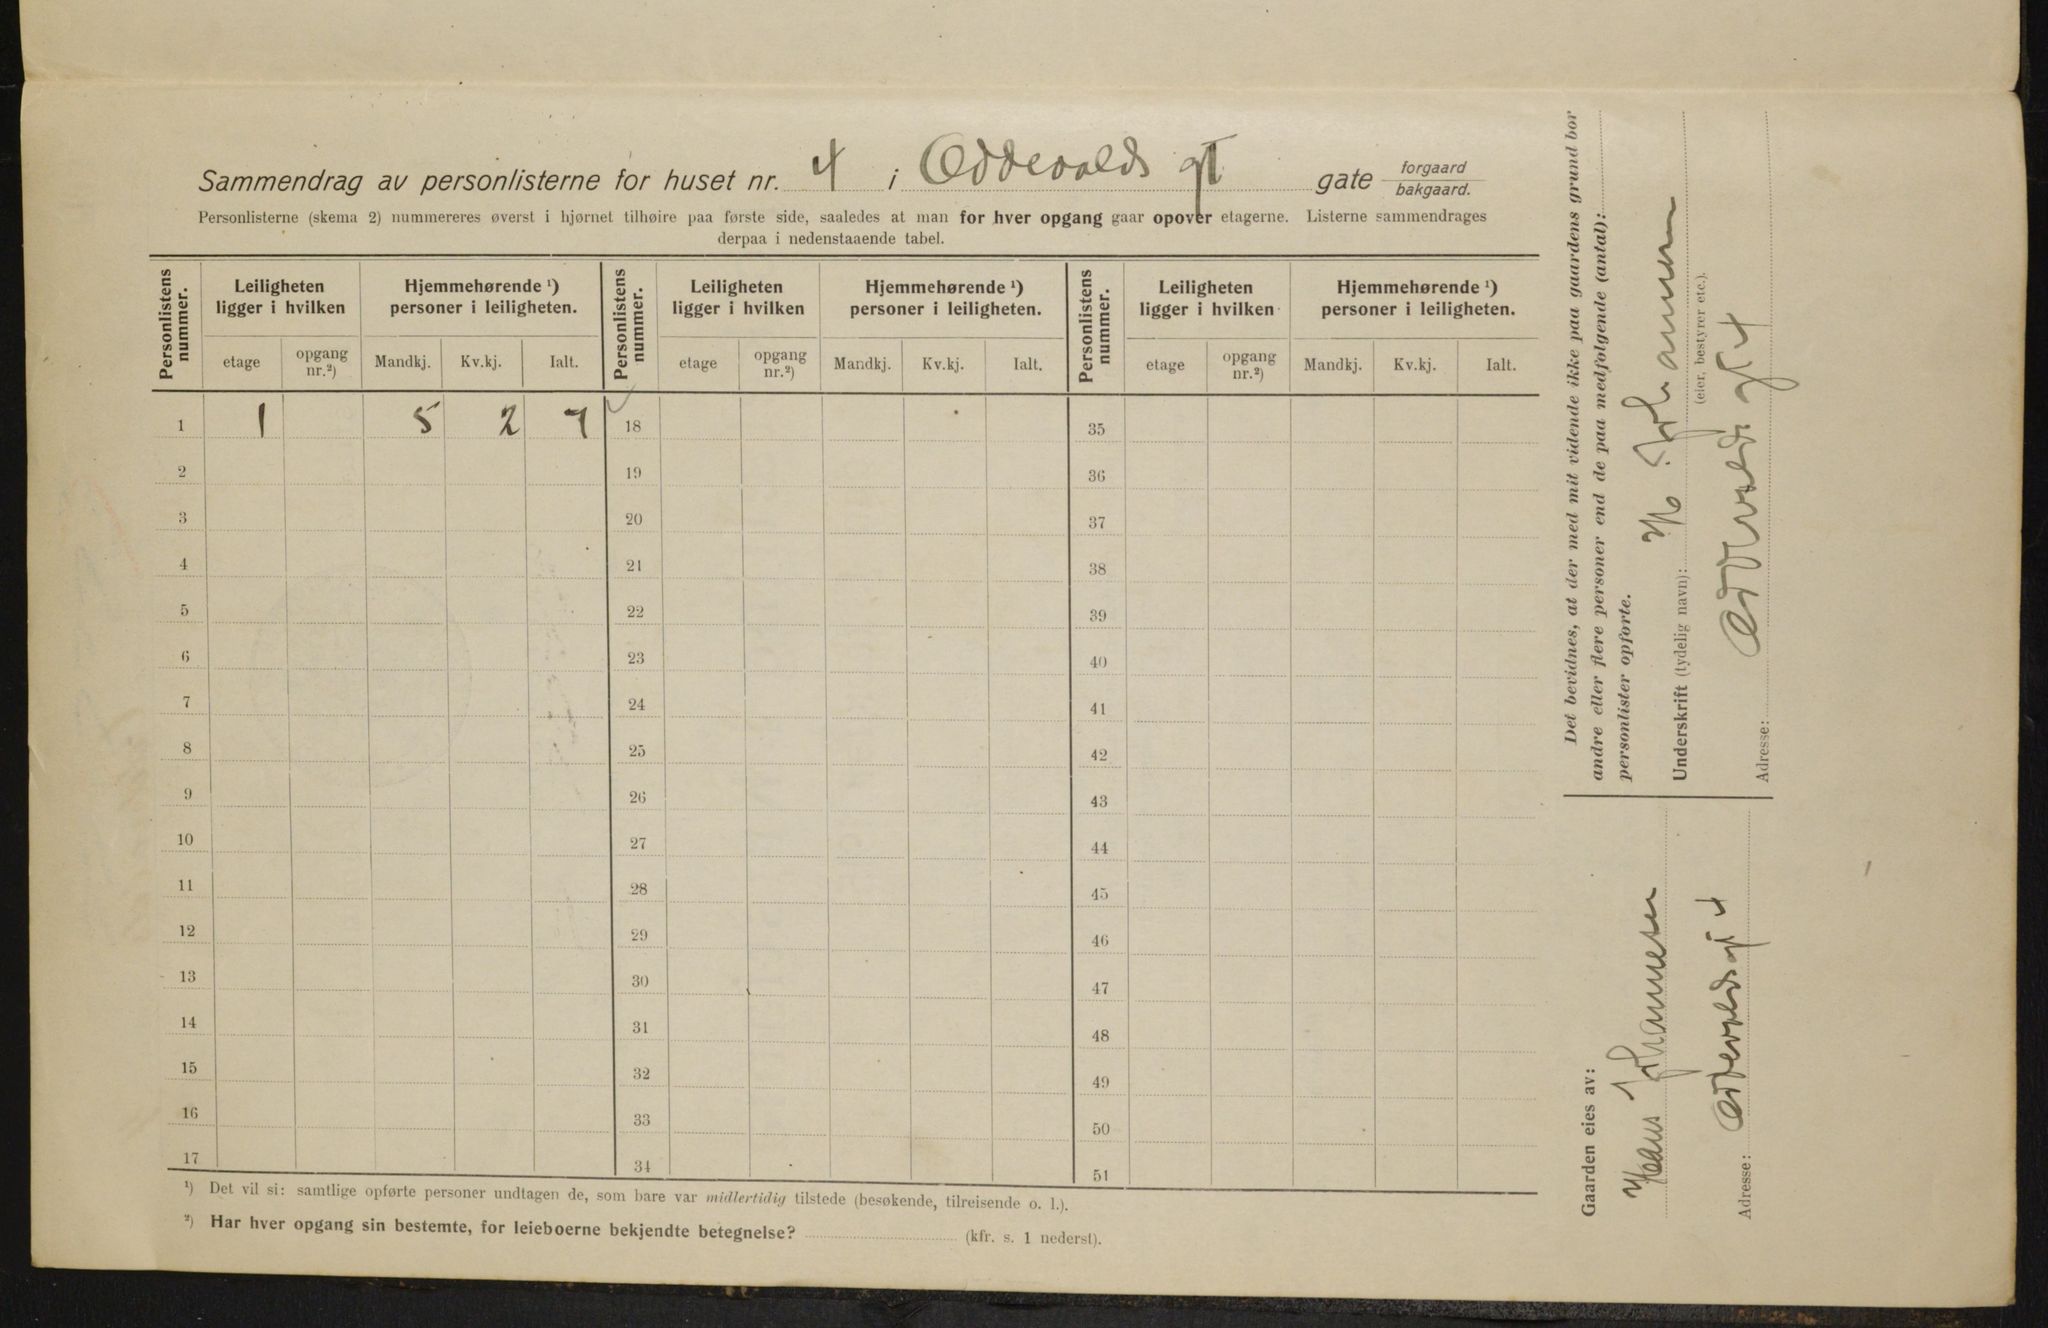 Sammendrag av personlisterne for huset nr. 4 i Oddevalds gt gate forgaard bakgaard.
Personlisterne (skema 2) nummereres øverst i hjørnet tilhøire paa første side, saaledes at man for hver opgang gaar opover etagerne. Listerne sammendrages
derpaa i nedenstaaende tabel.
Personlistens nummer. Leiligheten ligger i hvilken Hjemmehørende ¹) personer i leiligheten. Personlistens nummer. Leiligheten ligger i hvilken Hjemmehørende ¹) personer i leiligheten. Personlistens nummer. Leiligheten ligger i hvilken Hjemmehørende ¹) personer i leiligheten.
etage opgang nr.²) Mandkj. Kv.kj. Ialt. etage opgang nr.²) Mandkj. Kv.kj. Ialt. etage opgang nr.²) Mandkj. Kv.kj. Ialt.
1 1 5 2 7 18 35
2 19 36
3 20 37
4 21 38
5 22 39
6 23 40
7 24 41
8 25 42
9 26 43
10 27 44
11 28 45
12 29 46
13 30 47
14 31 48
15 32 49
16 33 50
17 34 51
¹) Det vil si: samtlige opførte personer undtagen de, som bare var midlertidig tilstede (besøkende, tilreisende o. l.).
²) Har hver opgang sin bestemte, for leieboerne bekjendte betegnelse? (kfr. s. 1 nederst).
Det bevidnes, at der med mit vidende ikke paa gaardens grund bor
andre eller flere personer end de paa medfølgende (antal):
personlister opførte.
Underskrift (tydelig navn): H Johannesen
(eier, bestyrer etc.).
Adresse: Oddevalds gt 4
Gaarden eies av:
Hans Johannesen
Adresse: Oddevalds gt 4